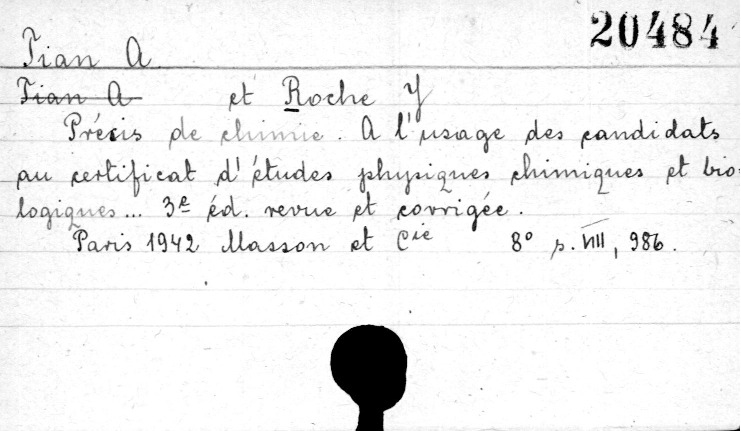 20484
Tian A
Tian A et Roche Y
Précis de chimie. A l'usage des candidats
au certificat d'études physiques chimiques et bio=
logiques... 3e éd. revue et corrigée.
Paris 1942 Masson et Cie 8° p. VIII, 986.